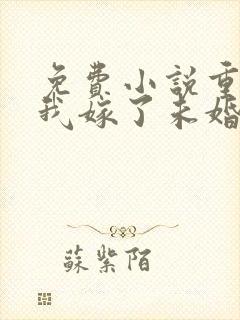 免費小説重
我嫁了未婚
蘇紫陌